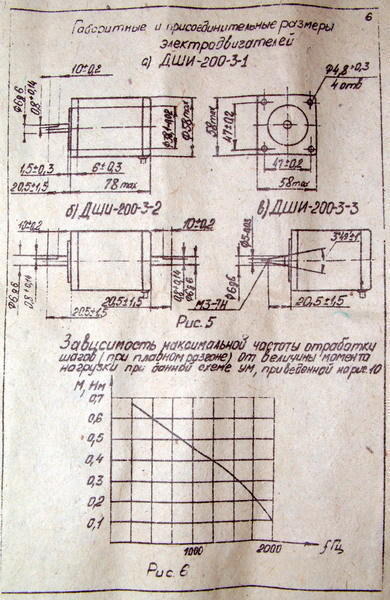 6
Габаритные и присоединительные размеры
электродвигателей
а) ДШИ-200-3-1
10±0,2
Ф4,8±0,3
4 отв
Ф6g6
0,8±0,14
Ф58max
58max
47±0,2
1,5±0,3
6±0,3
47±0,2
20,5±1,5
78max
58max
б) ДШИ-200-3-2
в) ДШИ-200-3-3
10±0,2
10±0,2
Ф6g6
0,8±0,14
0,8±0,14
Ф6g6
Ф6g6
20,5±1,5
20,5±1,5
М3-7Н
20,5±1,5
Рис. 5
Зависимость максимальной частоты отработки
шагов (при плавном разгоне) от величины момента
нагрузки при данной схеме ум, приведенной на рис. 10
М, Нм
0,7
0,6
0,5
0,4
0,3
0,2
0,1
1000
2000
f Гц
Рис. 6